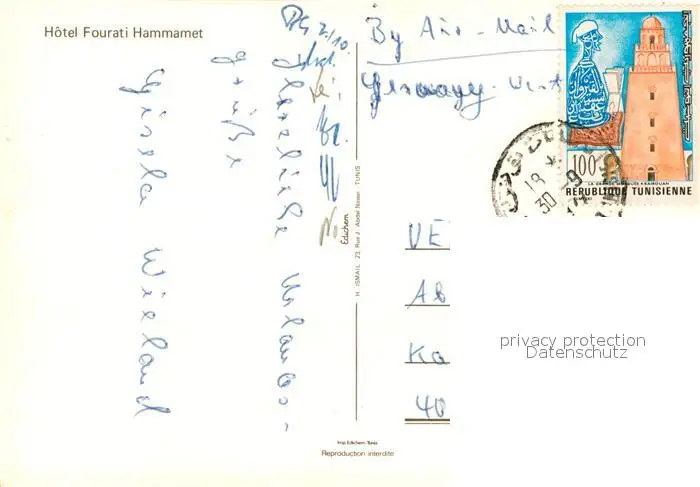 Hôtel Fourati Hammamet
Herzliche Urlaubs-
grüße
Gisela Wieland
By Air-Mail
Germany-West
100
LA GRANDE MOSQUEE KAIROUAN
REPUBLIQUE TUNISIENNE
18
30-9
VE
AB
Ka
40
Edichem
H. ISMAIL 23, Rue J. Abdel Nasser TUNIS
privacy protection
Datenschutz
Imp. Edichem-Tunis
Reproduction interdite